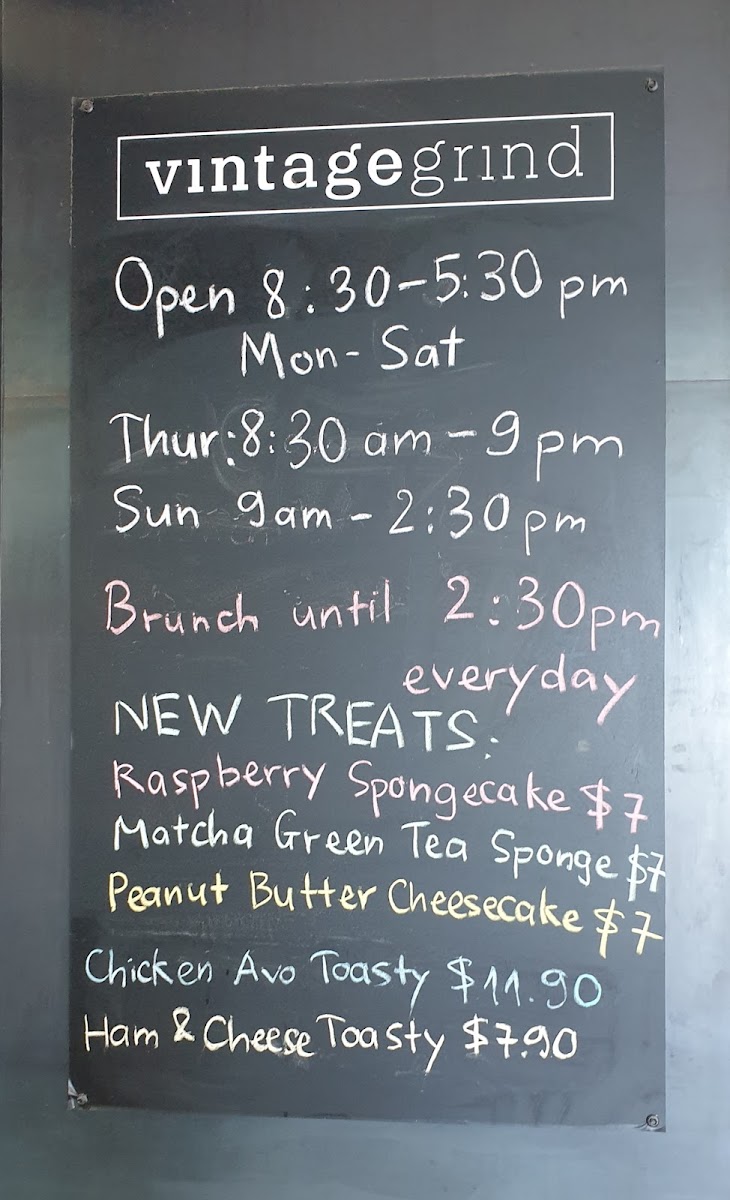 vintagegrind
Open 8:30-5:30 pm
Mon-Sat
Thur:8:30 am - 9pm
Sun 9am - 2:30pm
Brunch until 2:30pm
everyday
NEW TREATS:
Raspberry Spongecake $7
Matcha Green Tea Sponge $7
Peanut Butter Cheesecake $7
Chicken Avo Toasty $11.90
Ham & Cheese Toasty $7.90